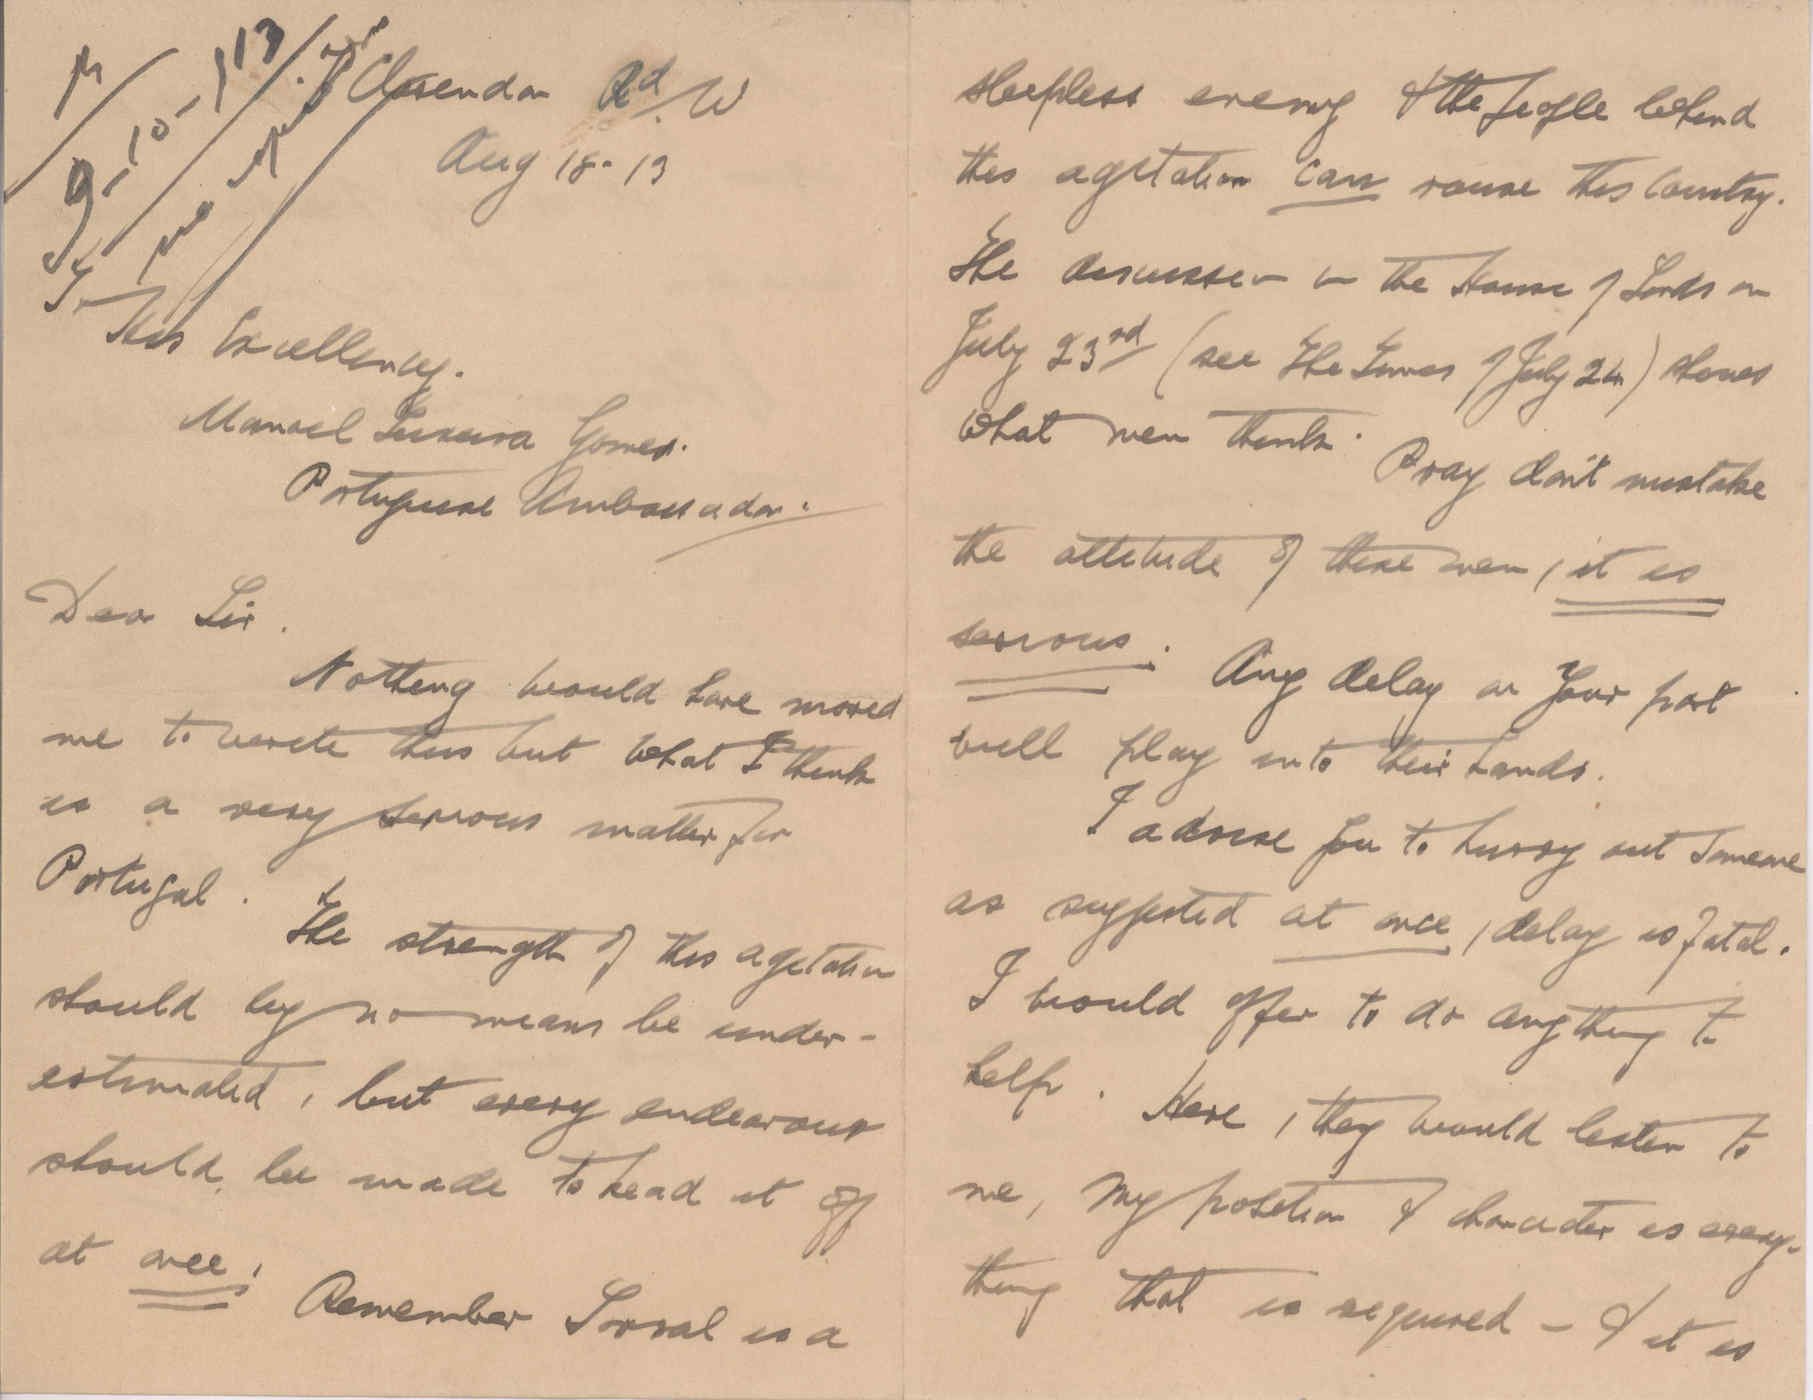 Clarendon Rd. W
Aug 18-13
His Excellency.
Manoel Teixeira Gomes.
Portuguese Ambassador.
Dear Sir.
Nothing would have moved
me to write this but what I think
is a very serious matter for
Portugal. The strength of this agitation
should by no means be under-
estimated, but every endeavour
should be made to head it off
at once. Remember Sorral is a
sleepless enemy & the people behind
this agitation can rouse this Country.
The discussion in the House of Lords on
July 23rd (see The Times of July 24) shows
what men think. Pray don't mistake
the attitude of these men, it is
serious. Any delay on your part
will play into their hands.
I advise you to hurry out someone
as suggested at once, delay is fatal.
I would offer to do anything to
help. Here, they would listen to
me, my position & character is every-
thing that is required - & it is